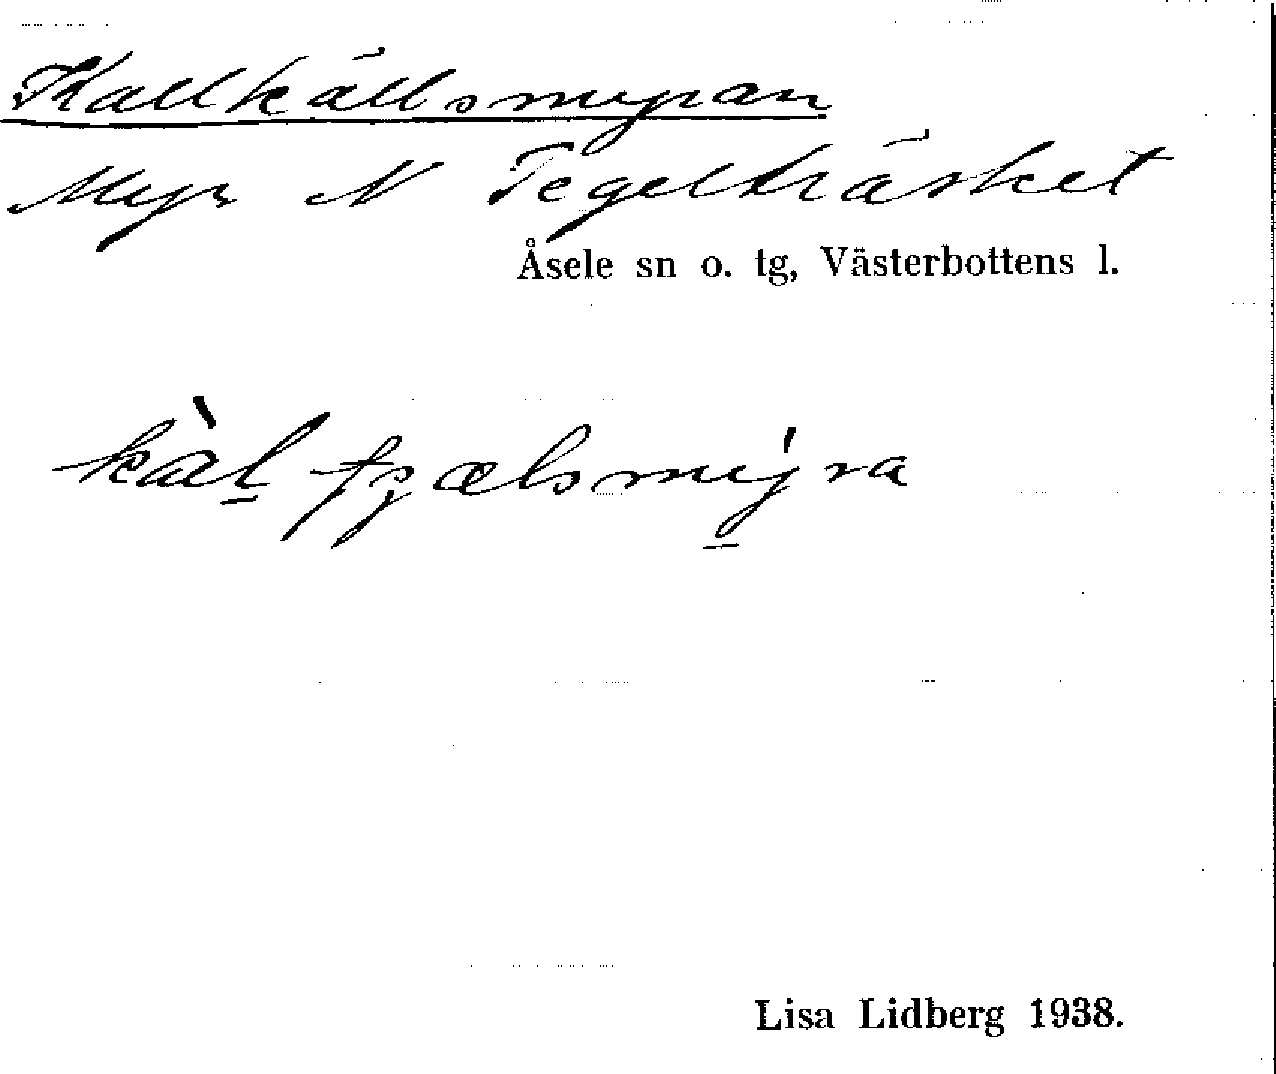 Kallkällsmyran
Myr N Tegelträsket
Åsele sn o. tg, Västerbottens l.
kàl̲ tȿælsmy̲̍ra
Lisa Lidberg 1938.